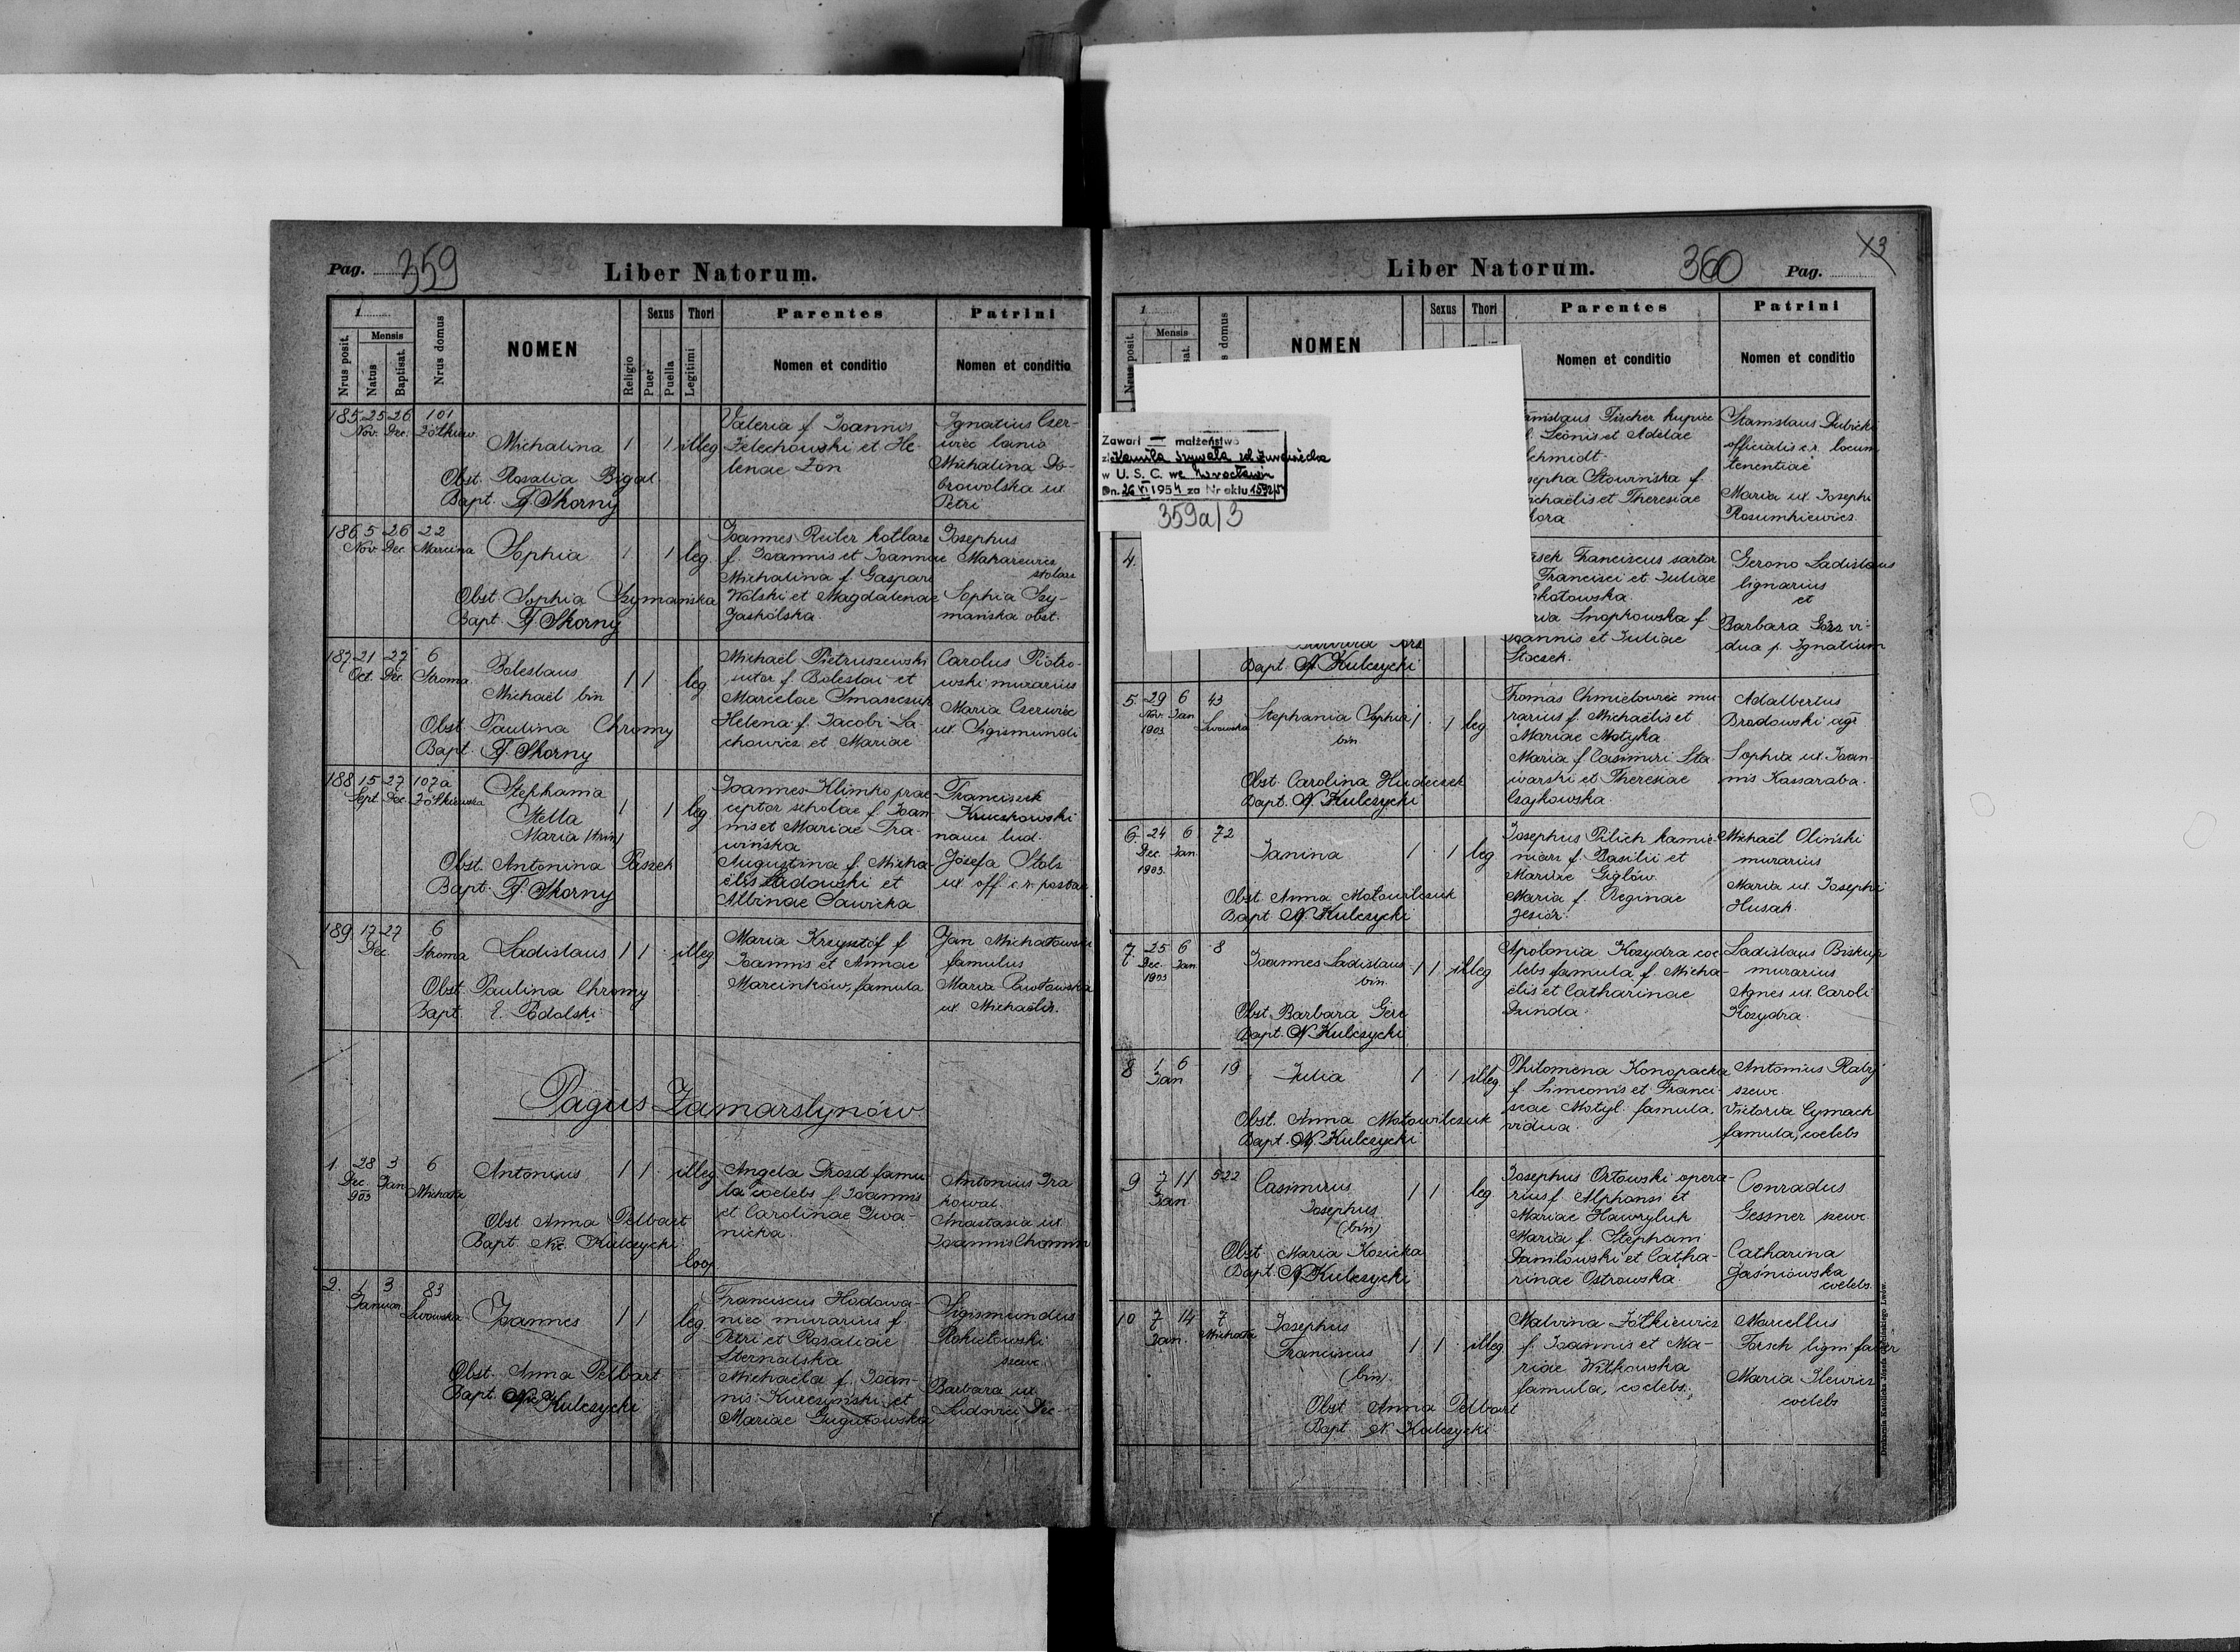 Pag. 359
Liber Natorum.
1
Mensis
Nrus posit.
Natus
Baptisat.
Nrus domus
NOMEN
Religio
Sexus
Puer
Puella
Thori
Legitimi
Parentes
Nomen et conditio
Patrini
Nomen et conditio
185 25 26 101
Nov. Dec. Żółkiew.
Michalina 1 1 illeg
Obst. Rosalia Bigal
Bapt. F Skorny
Valeria f. Joannis
Zelechowski et He-
lenae Zon
Ignatius Czer-
wiec lanio
Michalina Do-
browolska ux
Petri
186 5 26 22
Nov Dec Marcina
Sophia 1 1 leg.
Obst Sophia Szymańska
Bapt. F Skorny
Joannes Reiter kotlarz
f. Joannis et Joannae
Michalina f. Gaspari
Wolski et Magdalenae
Jaskólska
Josephus
Makarewicz
stolarz
Sophia Szy-
mańska obst.
187 21 27 6
Oct. Dec. Stroma
Boleslaus
Michaël bin 1 1 leg
Obst Paulina Chromy
Bapt. F Skorny
Michaël Pietruszewski
sutor f. Boleslai et
Marcelae Smaszczuk
Helena f. Jacobi La-
chowicz et Mariae
Carolus Piotro-
wski murarius
Maria Czerwiec
ux Sigismundi
188 15 27 107a
Sept. Dec. Żółkiewska
Stephania
Stella
Maria (trin) 1 1 leg
Obst. Antonina Paszek
Bapt. F. Skorny
Joannes Klimko prae-
ceptor scholae f. Joan-
nis et Mariae Tra-
wińska
Augustina f. Micha-
ëlis Ladowski et
Albinae Sawicka
Franciszek
Kruczkowski
naucz. lud.
Józefa Stols
ux off. c.r. postae
189 17 27 6
Dec. Stroma
Ladislaus 1 1 illeg
Obst. Paulina Chromy
Bapt. E. Podolski
Maria Krzysztof f
Joannis et Annae
Marcinków, famula
Jan Michałowski
famulus
Maria Pawłowska
ux Michaëlis.
Pagus Zamarstynów
1. 28 3 6
Dec. Jan Michała
903
Antonius 1 1 illeg
Obst Anna Pelbart
Bapt. Nic. Kulczycki
Angela Drozd famu-
la coelebs f. Joannis
et Carolinae Iwa-
nicka.
Antonius Dra
kowal.
Anastasia ux
Joannis Chomin
2. 1 3 83
Januar. Lwowska
Joannes 1 1 leg.
Obst. Anna Pelbart
Bapt. N. Kulczycki
Franciscus Hodowa-
niec murarius f.
Petri et Rosaliae
Sternalska
Michaëla f. Joan-
nis Kurczyński et
Mariae Gugułowska
Sigismundus
Rokitowski
szewc
Barbara ux
Ludovici Dec
360 Pag. 73
Liber Natorum.
1
Mensis
Nrus posit.
domus
NOMEN
Sexus
Thori
Parentes
Nomen et conditio
Patrini
Nomen et conditio
Zawarł małżeństwo
z Kamila Szywała
w U. S. C. we Wrocławiu
Dn. 26 VI 1954 za Nr aktu 1592/54
359a/3
Fischer kupiec
f. Leonis et Adelae
Schmidt.
Słowińska f.
Michaëlis et Theresiae
Stanislaus Dubicki
officialis c.r. locum
tenentiae
Maria ux Josephi
Rozumkiewicz.
4.
Bapt. N Kulczycki
Franciscus sartor
Francisci et Juliae
Snopkowska f.
Joannis et Juliae
Stoczek.
Gerono Ladislaus
lignarius
et
Barbara Górz vi-
dua p. Ignatium
5. 29 6 43
Nov. Jan Lwowska
1903
Stephania Sophia 1 1 leg
bin
Obst. Carolina Hudeczek
Bapt. N. Kulczycki
Thomas Chmielowiec mu-
rarius f. Michaëlis et
Mariae Motyka.
Maria f Casimiri Sta-
warski et Theresiae
Czajkowska.
Adalbertus
Brodowski agr
Sophia ux. Joan-
nis Kassaraba.
6 24 6 72
Dec. Jan.
1903.
Janina 1 1 leg
Obst Anna Motowilczuk
Bapt N. Kulczycki
Josephus Pilich kamie-
niarz f. Basilii et
Mariae Giglów.
Maria f. Reginae
Jesiór.
Michaël Oliński
murarius
Maria ux. Josephi
Husak.
7. 25 6 8
Dec. Jan
1903
Joannes Ladislaus 1 1 illeg
bin.
Obst. Barbara Gere
Bapt. N. Kulczycki
Apolonia Kozydra coe-
lebs famula f. Micha-
ëlis et Catharinae
Dunda.
Ladislaus Biskup
murarius
Agnes ux. Caroli
Kozydra.
8 1 6 19
Jan
Julia 1 1 illeg.
Obst. Anna Motowilczuk
Bapt. N. Kulczycki
Philomena Konopacka
f. Simeonis et Franci-
scae Motyl. famula,
vidua.
Antonius Rałyj
szewc.
Victoria Cymach
famula, coelebs
9 7 11 522
Jan.
Casimirus
Josephus
(bin) 1 1 leg.
Obst. Maria Kozicka
Bapt. N Kulczycki
Josephus Orłowski opera-
rius f. Alphonsi et
Mariae Hawryluk
Maria f. Stephani
Daniłowski et Catha-
rinae Ostrowska.
Conradus
Gessner szewc.
Catharina
Jaśniowska
coelebs.
10 7 14 7
Jan. Michała
Josephus
Franciscus
(bin) 1 1 illeg.
Obst Anna Pelbart
Bapt N. Kulczycki
Malvina Żółkiewicz
f. Joannis et Ma-
riae Witkowska
famula, coelebs.
Marcellus
Forsch ligni faber
Maria Ilewicz
coelebs